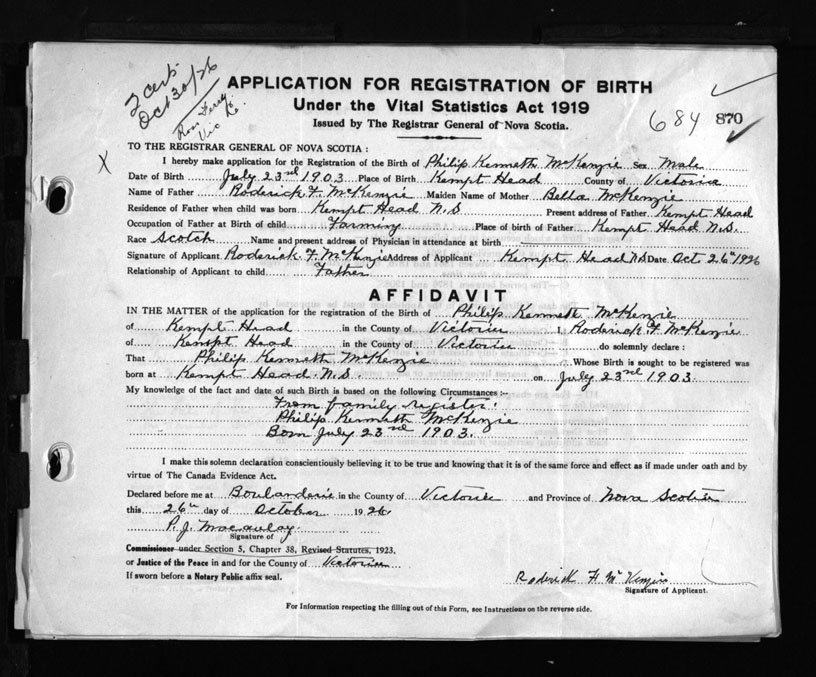 2 cert.
Oct 30/26
Ross Ferry
Vic Co.
APPLICATION FOR REGISTRATION OF BIRTH
Under the Vital Statistics Act 1919
Issued by The Registrar General of Nova Scotia.
684 870
TO THE REGISTRAR GENERAL OF NOVA SCOTIA :
X
I hereby make application for the Registration of the Birth of Philip Kenneth McKenzie Sex Male
Date of Birth July 23rd 1903 Place of Birth Kempt Head County of Victoria
Name of Father Roderick F. McKenzie Maiden Name of Mother Bella McKenzie
Residence of Father when child was born Kempt Head N.S Present address of Father Kempt Head
Occupation of Father at Birth of child Farming Place of birth of Father Kempt Head N.S.
Race Scotch Name and present address of Physician in attendance at birth
Signature of Applicant Roderick F. McKenzie Address of Applicant Kempt Head N.S Date Oct 26th 1926
Relationship of Applicant to child Father
AFFIDAVIT
IN THE MATTER of the application for the registration of the Birth of Philip Kenneth McKenzie
of Kempt Head in the County of Victoria I, Roderick F. McKenzie
of Kempt Head in the County of Victoria do solemnly declare :
That Philip Kenneth McKenzie Whose Birth is sought to be registered was
born at Kempt Head N.S. on July 23rd 1903.
My knowledge of the fact and date of such Birth is based on the following Circumstances :-
From family register:
Philip Kenneth McKenzie
Born July 23rd 1903.
I make this solemn declaration conscientiously believing it to be true and knowing that it is of the same force and effect as if made under oath and by
virtue of The Canada Evidence Act.
Declared before me at Boularderie in the County of Victoria and Province of Nova Scotia
this 26th day of October 1926
P. J. Macaulay
Signature of
Commissioner under Section 5, Chapter 38, Revised Statutes, 1923.
or Justice of the Peace in and for the County of Victoria
If sworn before a Notary Public affix seal.
Roderick F McKenzie
Signature of Applicant.
For Information respecting the filling out of this Form, see Instructions on the reverse side.